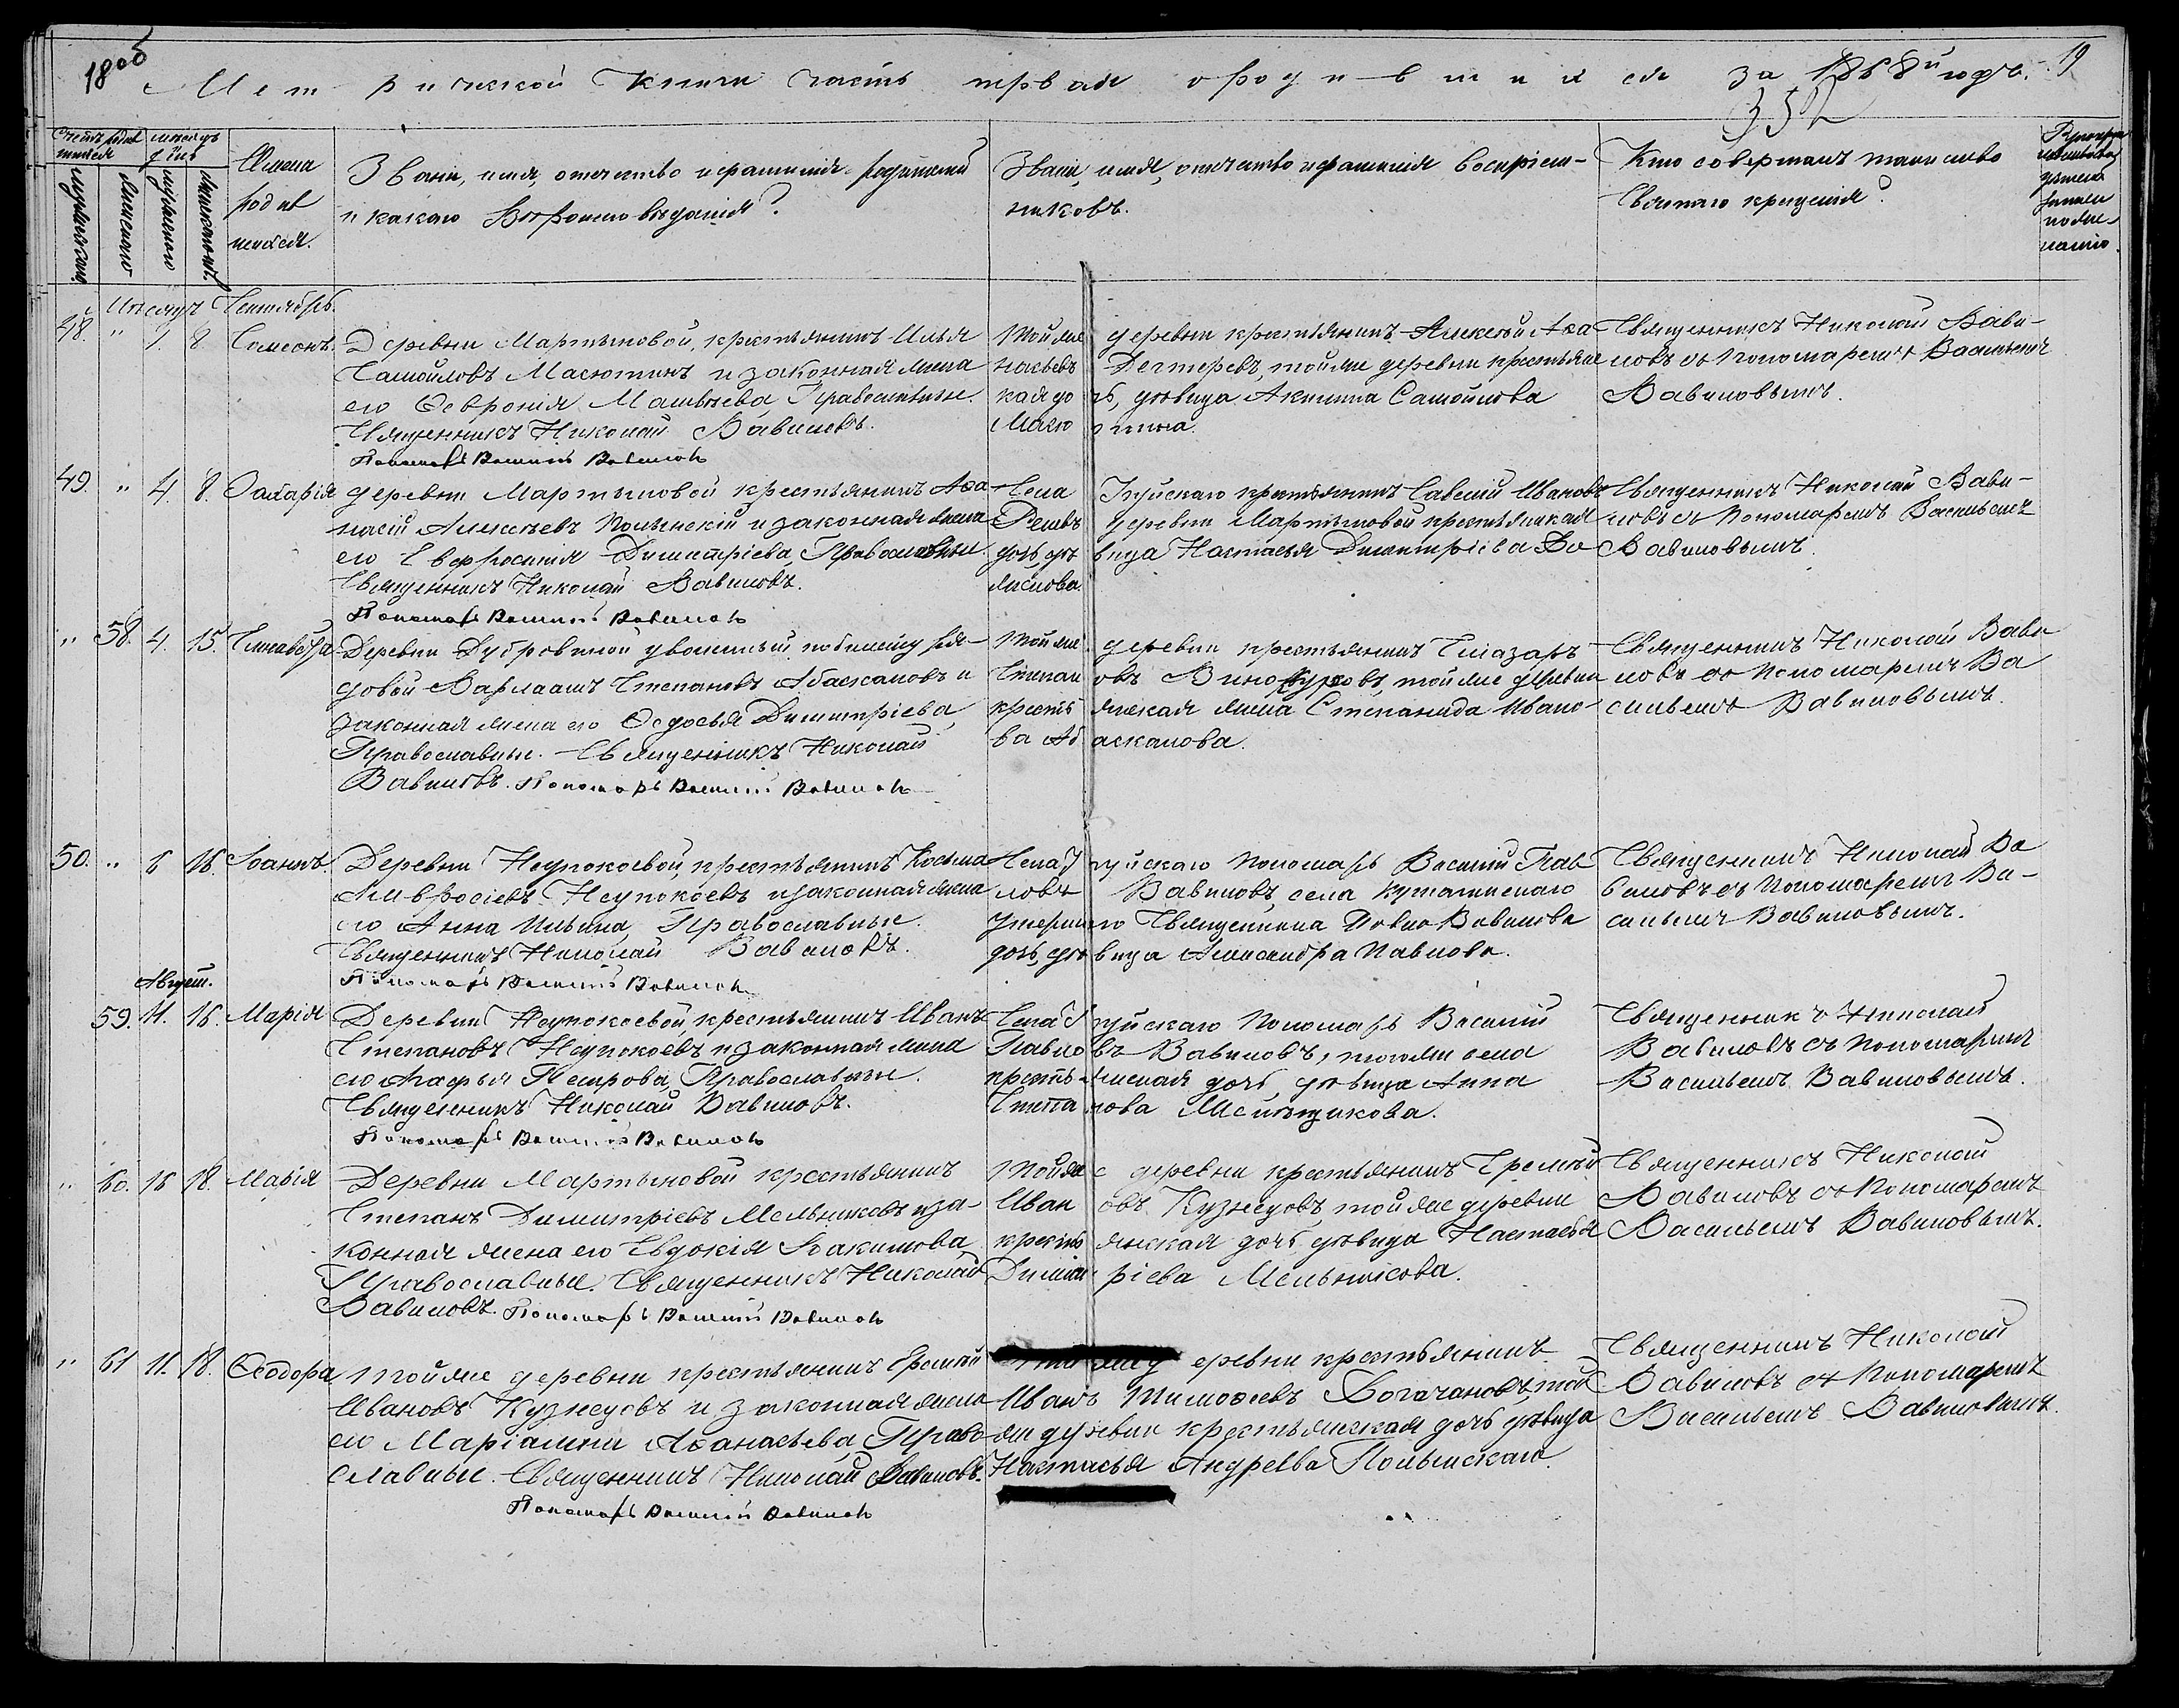 18об
Метрической книги часть первая о родившихся за 1868й годъ. 19
352
Счетъ родив
шихся
месяцъ
и дни
Имена
родив
шихся.
Званіе, имя, отчество и фамилія родителей
и какого вѣроисповѣданія?
Званіе, имя, отчество и фамилія воспріем-
никовъ.
Кто совершалъ таинство
Святаго крещенія?
мужеска
женска
рожденія
крещенія
Месяцъ Сентябрь.
48. " 1. 8. Симеонъ.
Деревни Мартыновой, крестьянинъ Илья
Самойловъ Масютинъ и законная жена
его Февронія Матвѣева, Православные.
Священникъ Николай Вавиловъ.
Пономарь Василій Вавиловъ
Той же деревни крестьянинъ Алексѣй Афа
насьевъ Дегтеревъ, той же деревни крестьянс
кая дочь, дѣвица Акилина Самойлова
Масютина.
Священникъ Николай Вави-
ловъ съ Пономаремъ Васильемъ
Вавиловымъ.
49. " 4. 8. Захарія
деревни Мартыновой крестьянинъ Афа
насій Алексѣевъ Полынскій и законная жена
его Евфросинія Димитріева, Православные.
Священникъ Николай Вавиловъ.
Пономарь Василій Вавиловъ
Села крестьянинъ Савелій Ивановъ
деревни Мартыновой крестьянская
дочь, дѣвица Настасья Димитріева
Священникъ Николай Вави-
ловъ съ Пономаремъ Васильемъ
Вавиловымъ.
" 58. 4. 15. Елисавета
Деревни Дубровиной уволенный по билету ря-
довой Варлаамъ Степановъ Абаскаловъ и
законная жена его Федосья Димитріева,
Православные. Священникъ Николай
Вавиловъ. Пономарь Василій Вавиловъ
Той же деревни крестьянинъ Елиазаръ
Степановъ Винокуровъ, той же деревни
крестьянская жена Степанида Ивано
ва Абаскалова.
Священникъ Николай Вави
ловъ съ Пономаремъ Ва
сильемъ Вавиловымъ.
50. " 6 16. Іоаннъ.
Деревни Неупокоевой, крестьянинъ Косьма
Амвросіевъ Неупокоевъ и законная жена
его Анна Ильина, Православные.
Священникъ Николай Вавиловъ.
Пономарь Василій Вавиловъ
Пономарь Василій Пав
ловъ Вавиловъ, села
умершаго Священника Павла Вавилова
дочь, дѣвица Александра Павлова.
Священникъ Николай Ва
виловъ съ Пономаремъ Ва-
сильемъ Вавиловымъ.
Август.
59. 11. 16. Марія
Деревни Неупокоевой, крестьянинъ Иванъ
Степановъ Неупокоевъ и законная жена
его Агафья Петрова, Православные.
Священникъ Николай Вавиловъ.
Пономарь Василій Вавиловъ
Пономарь Василій
Павловъ Вавиловъ, того же села
крестьянская дочь, дѣвица Анна
Степанова Мельникова.
Священникъ Николай
Вавиловъ съ Пономаремъ
Васильемъ Вавиловымъ.
" 60. 16 18. Марія
Деревни Мартыновой крестьянинъ
Степанъ Димитріевъ Мельниковъ и за-
конная жена его Евдокія Іоакимова
Православные. Священникъ Николай
Вавиловъ. Пономарь Василій Вавиловъ
Той же деревни крестьянинъ Еремѣй
Ивановъ Кузнецовъ, той же деревни
крестьянская дочь дѣвица Настасья
Димитріева Мельникова.
Священникъ Николай
Вавиловъ съ Пономаремъ
Васильемъ Вавиловымъ.
" 61 11. 18. Феодора
Той же деревни крестьянинъ Еремѣй
Ивановъ Кузнецовъ и законная жена
его Маріамни Афанасьева, Право
славные. Священникъ Николай Вавиловъ.
Пономарь Василій Вавиловъ
деревни крестьянинъ
Иванъ Тимофеевъ Богачановъ, той
же деревни крестьянская дочь дѣвица
Настасья Андреева Полынскаго
Священникъ Николай
Вавиловъ съ Пономаремъ
Васильемъ Вавиловымъ.